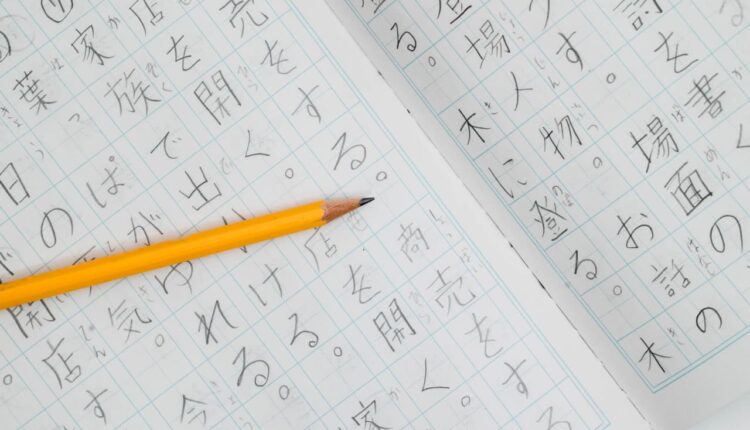 を書
する。場面の
登場人物。お話の
木に登る。木の
る。
売をする。商売をする
店を開く。店を開く。
家族で出かける。家
葉っぱがゆれる。
日の天気。今
が開店す